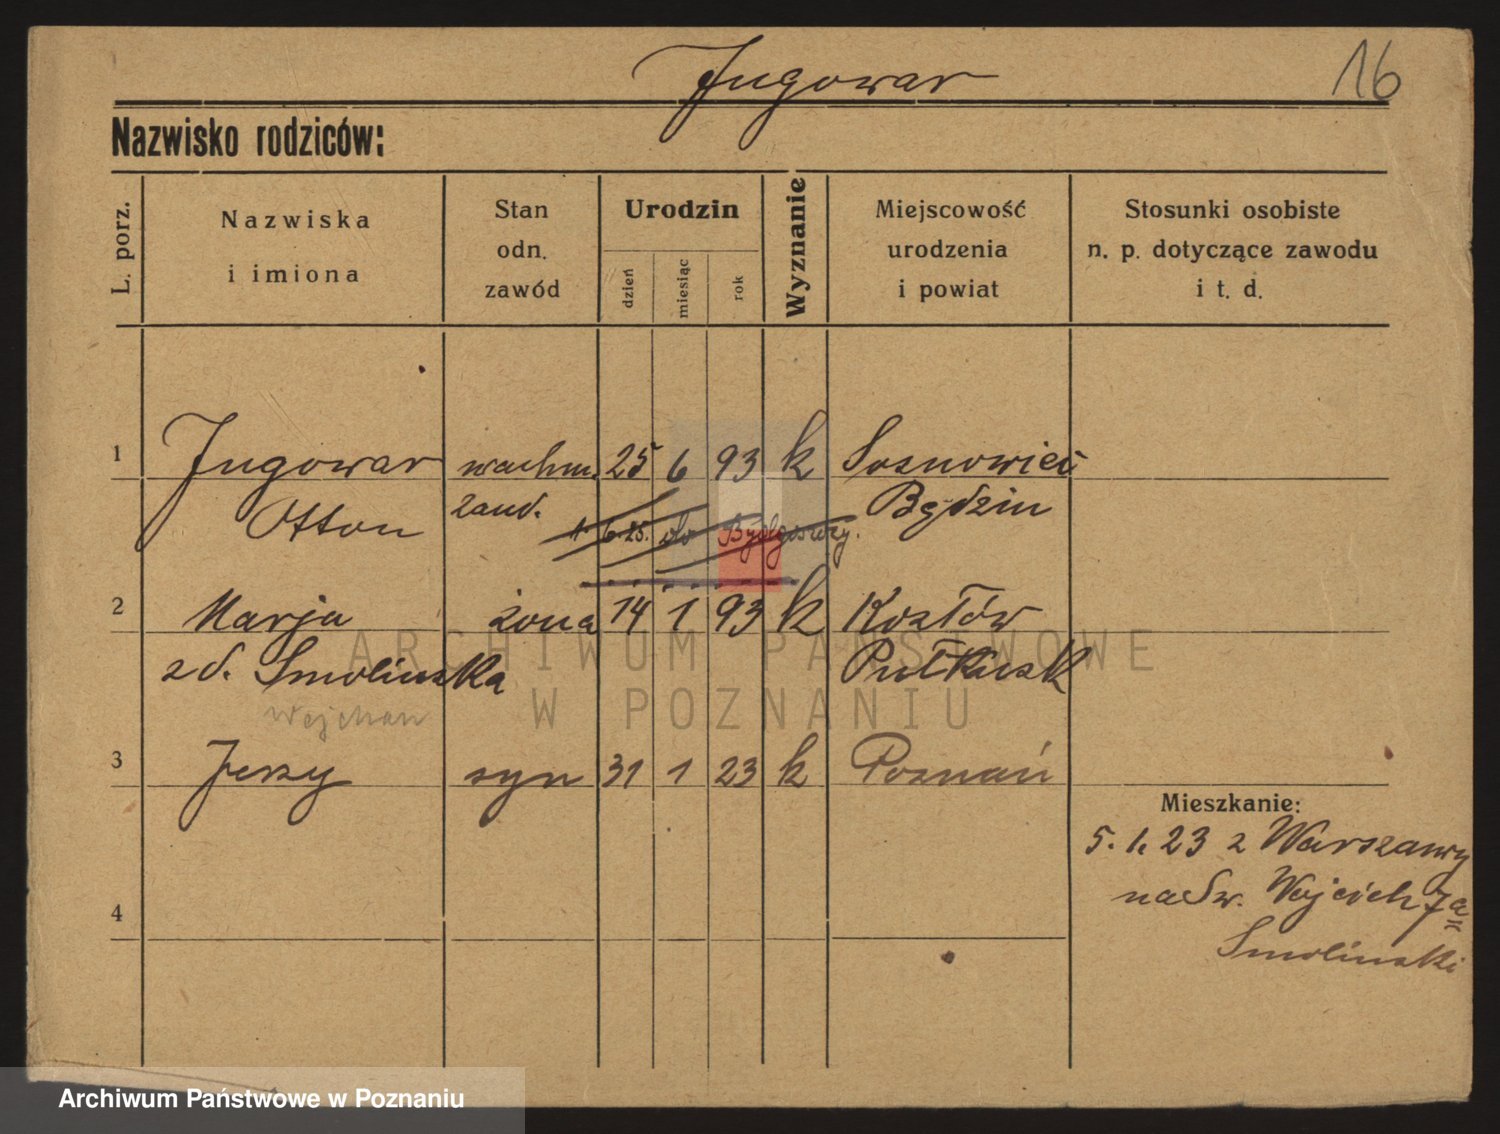 Jugowar
16
Nazwisko rodziców:
L. porz.
Nazwiska
i imiona
Stan
odn.
zawód
Urodzin
dzień
miesiąc
rok
Wyznanie
Miejscowość
urodzenia
i powiat
Stosunki osobiste
n. p. dotyczące zawodu
i t. d.
1 Jugowar wachm. 25 6 93 k Sosnowiec
Otton żand. Będzin
6.25. do Bydgoszczy.
2 Marja żona 14 1 93 k Kozłów
z d. Smolinska Pułtusk
3 Jerzy syn 31 1 23 k Poznań
Mieszkanie:
5. 1. 23 z Warszawy
na Św. Wojciech 7a
Smolinski
4
ARCHIWUM PAŃSTWOWE
W POZNANIU
Archiwum Państwowe w Poznaniu